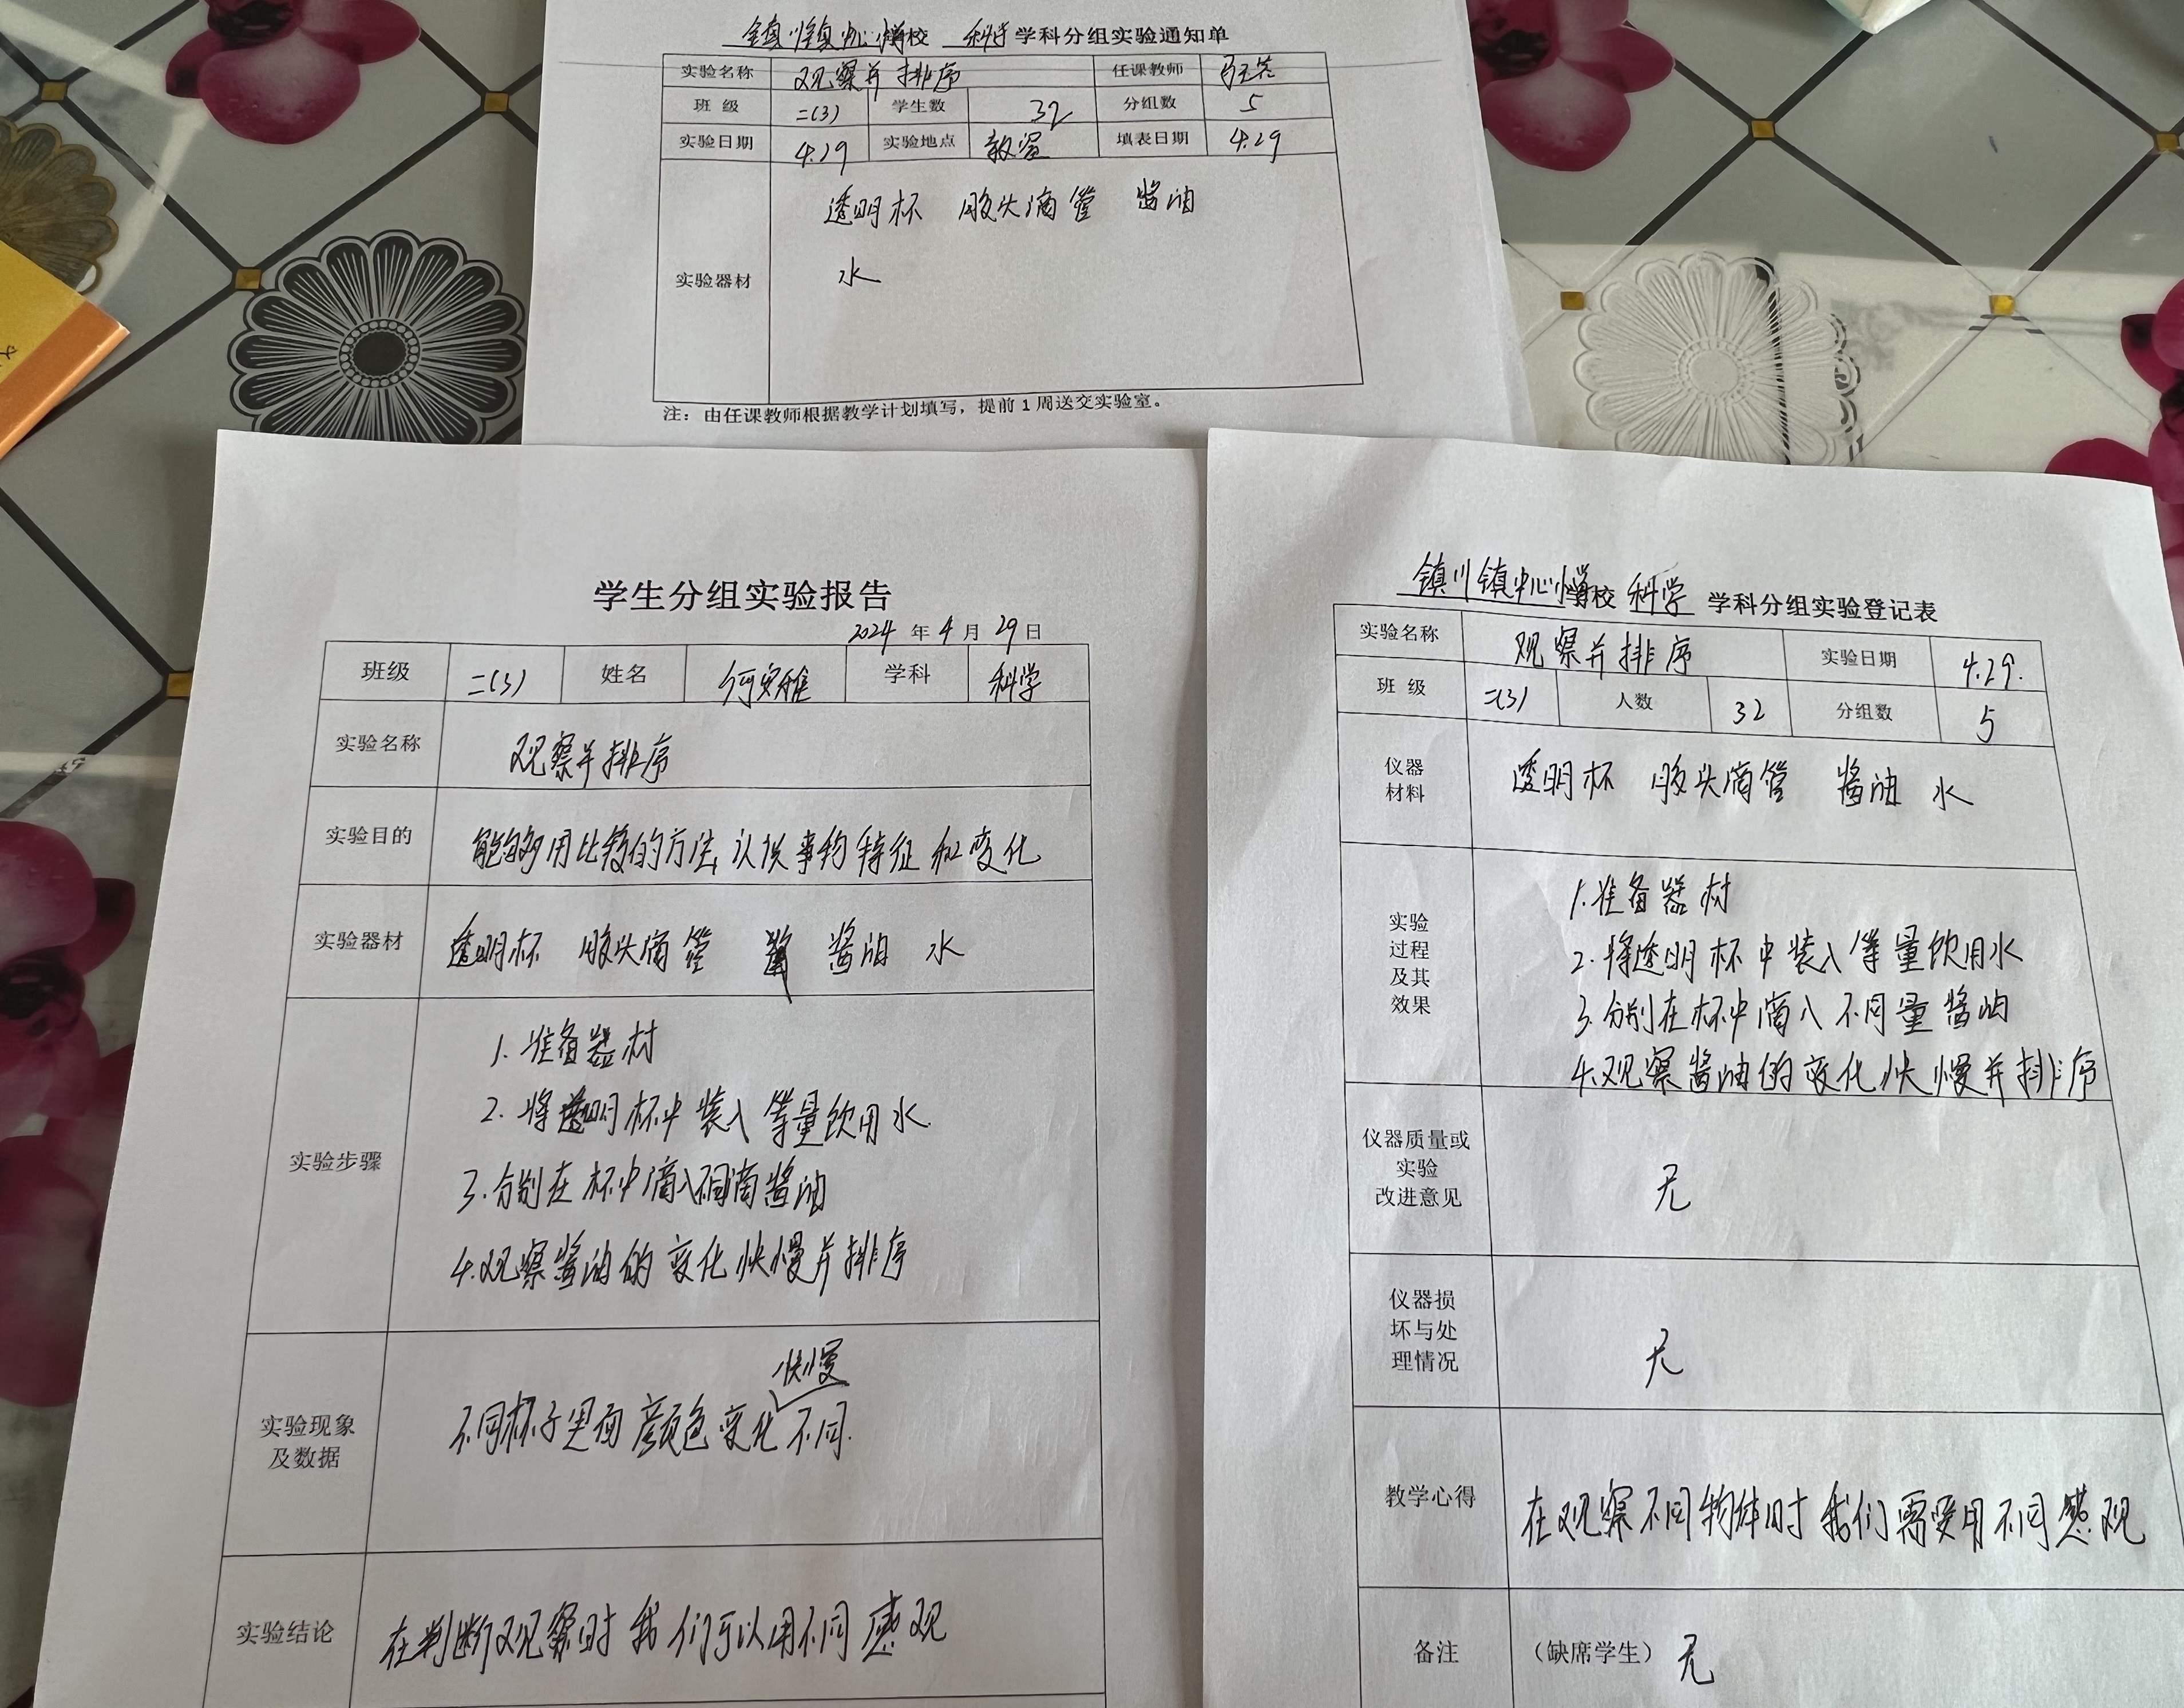 镇川镇中心小学学校 科学 学科分组实验通知单
实验名称 观察并排序 任课教师
班 级 二(3) 学生数 32 分组数 5
实验日期 4.29 实验地点 教室 填表日期 4.29
实验器材 透明杯 胶头滴管 酱油
水
注：由任课教师根据教学计划填写，提前1周送交实验室。
学生分组实验报告
2024 年 4 月 29 日
班级 二(3) 姓名 学科 科学
实验名称 观察并排序
实验目的 能够用比较的方法,认识事物特征和变化
实验器材 透明杯 胶头滴管 酱油 水
实验步骤
1. 准备器材
2. 将透明杯中装入等量饮用水.
3. 分别在杯中滴入不同滴酱油
4. 观察酱油的变化快慢并排序
实验现象
及数据
不同杯子里面颜色变化快慢不同.
实验结论 在判断观察时我们可以用不同感观
镇川镇中心小学学校 科学 学科分组实验登记表
实验名称 观察并排序 实验日期 4.29.
班 级 二(3) 人数 32 分组数 5
仪器
材料
透明杯 胶头滴管 酱油 水
实验
过程
及其
效果
1. 准备器材
2. 将透明杯中装入等量饮用水
3. 分别在杯中滴入不同量酱油
4. 观察酱油的变化快慢并排序
仪器质量或
实验
改进意见
无
仪器损
坏与处
理情况
无
教学心得 在观察不同物体时我们需要用不同感观
备注 （缺席学生） 无